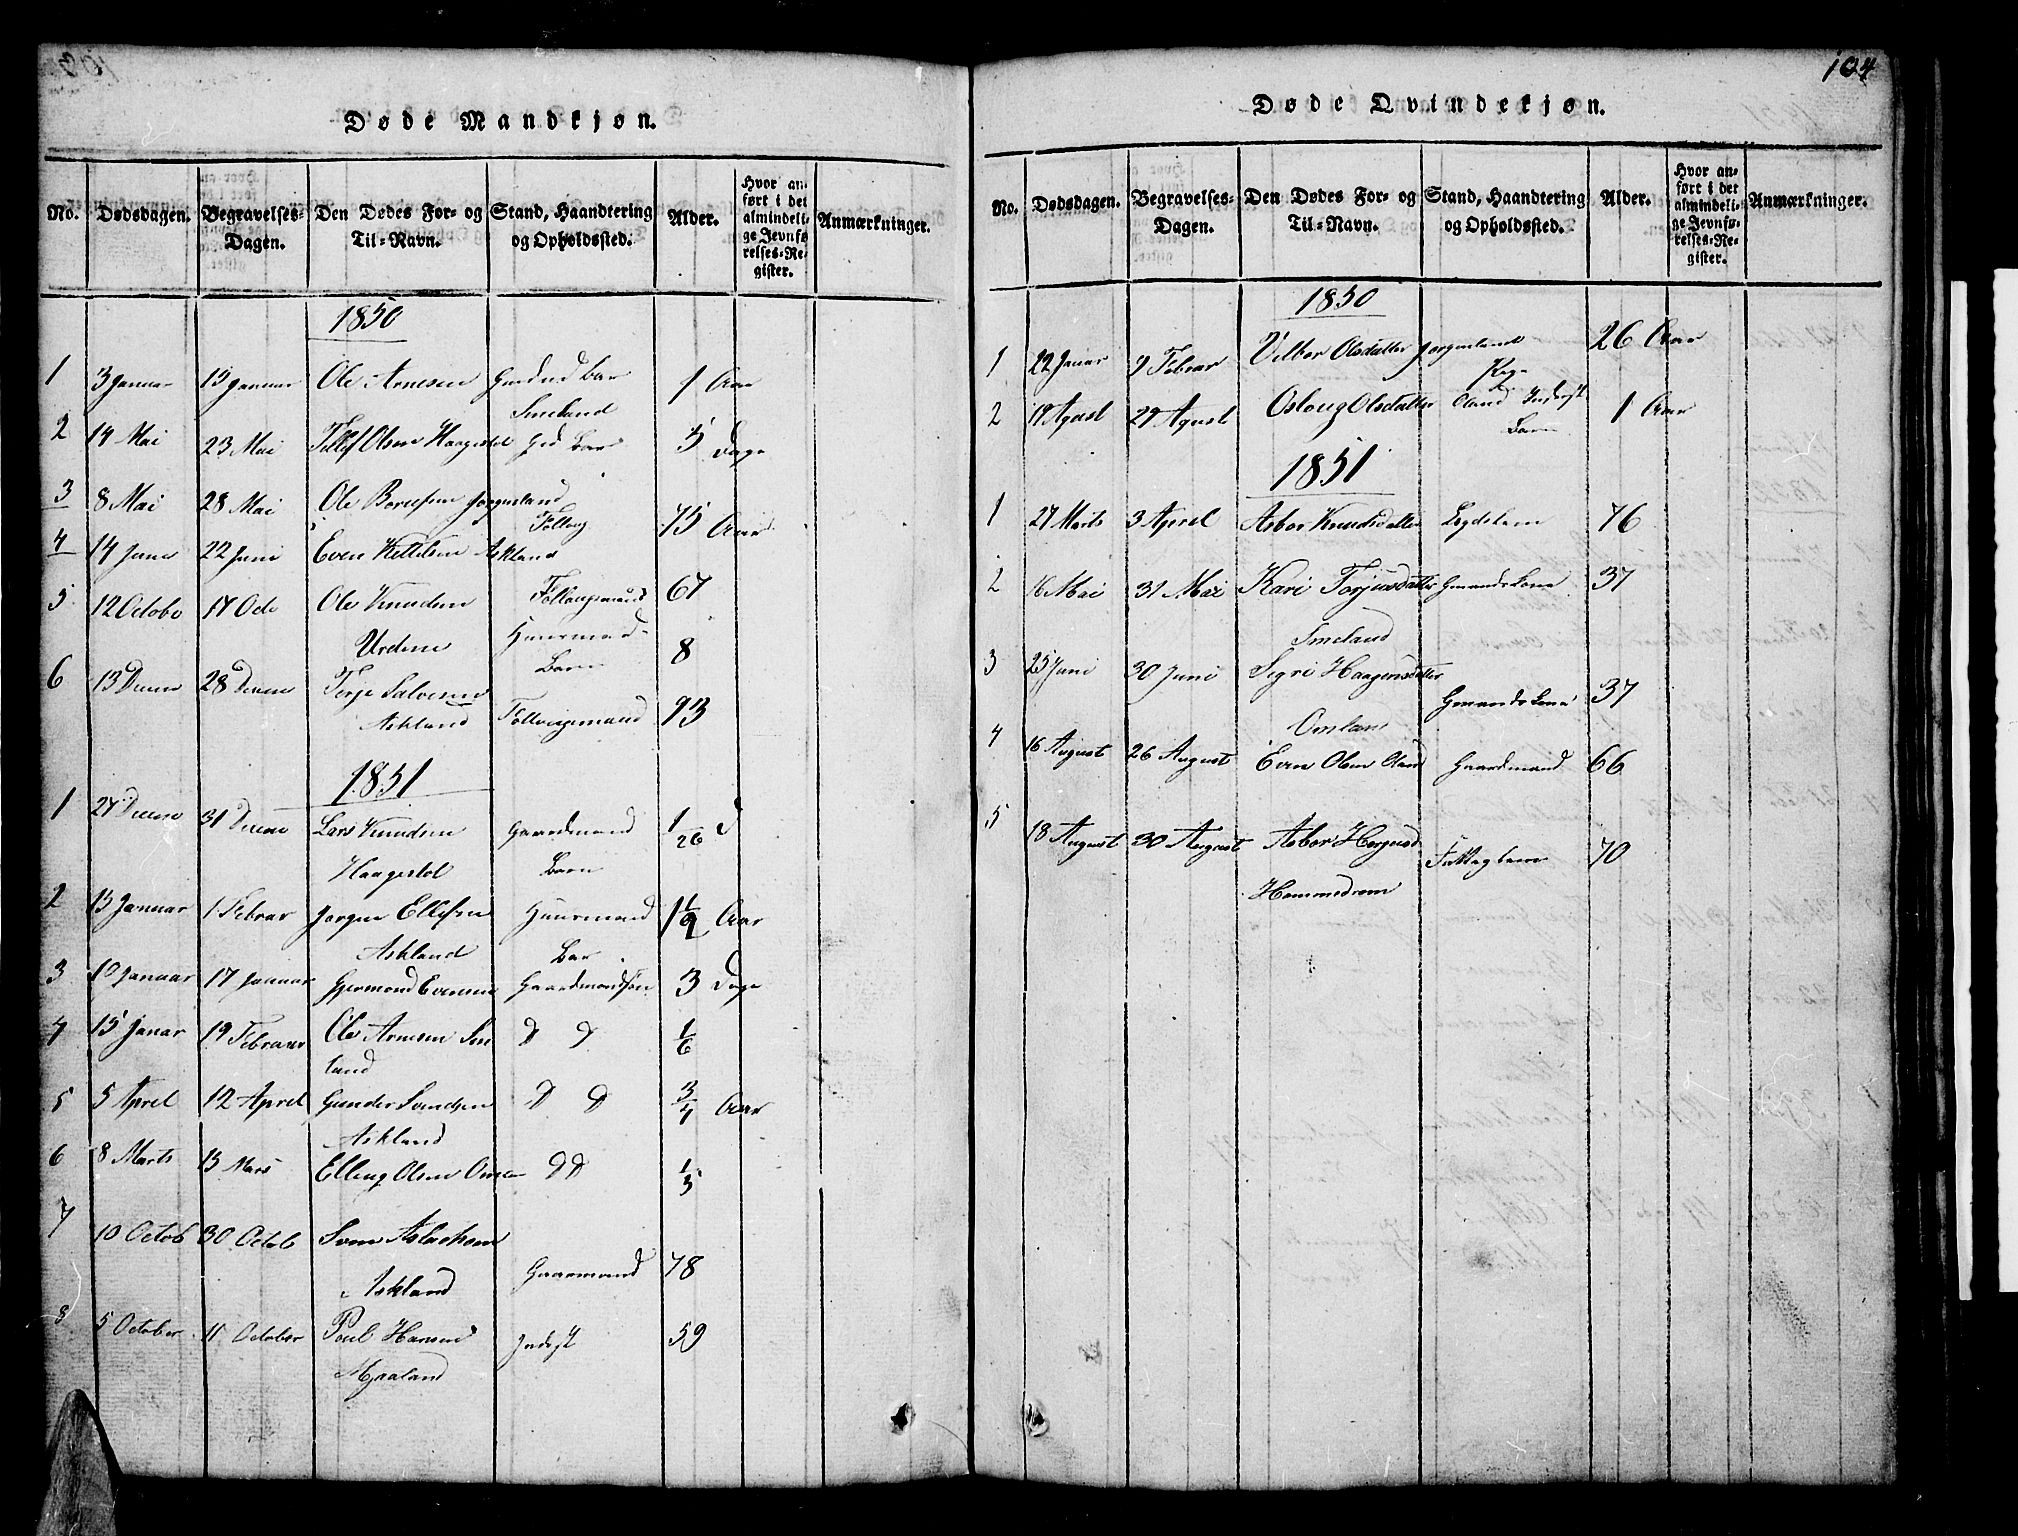 104
Døde Mandkjøn.
No. Dødsdagen. Begravelses-Dagen. Den Dødes For- og Til-Navn. Stand, Haandtering og Opholdssted. Alder. Hvor anført i det almindelige Jevnførelses-Register. Anmærkninger.
1850
1 3 Januar 13 Januar Ole Arnesen
Smeland 1 Aar
2 14 Mai 23 Mai Tellef Olsen Haagestol 5 Dage
3 8 Mai 28 Mai Ole Jorgusland 75 Aar
4 14 Juni 22 Juni Even Kittelsen Askland
67
5 12 Octobe 17 Octo Ole Knudsen
Urdene Huusmand-
Barn 8
6 13 Decem 28 Decem Terje Salvesen
Askland 93
1851
1 27 Decem 31 Decem Lars Knudsen Gaardmand
Haagestol Barn 1/26
2 13 Januar 1 Febrar Jorgen Ellefsen Huusmand 1 1/2 Aar
Askland Bar
3 10 Januar 17 Januar Gjermond Evensen Gaardmandsøn 3 Dage
4 15 Janar 19 Febraar Ole Arnesen Sme
land D D 1/6
5 5 Aprel 12 Aprel Gunder Svendsen D D 3/4 Aar
Askland
6 8 Marts 13 Mars Elleng Olsen D D 1/5
7 10 Octob 30 Octob Sven Aslaksen
Askland Gaarmand 78
8 5 October 11 October Poul Hansen
Mjaaland Indsgt 59
Døde Qvindekjøn.
No. Dødsdagen. Begravelses-Dagen. Den Dødes For- og Til-Navn. Stand, Haandtering og Opholdssted. Alder. Hvor anført i det almindelige Jevnførelses-Register. Anmærkninger.
1850
1 22 Januar 9 Febrar Vilbor Olsdatter Jorgusland
Pige 26 Aar
2 19 Agust 29 Agust Oslaug Olsdatter Oland Inderst
Barn 1 Aar
1851
1 27 Marts 3 Aprel Asbor Knudsdatter Legdslem 76
2 16 Mai 31 Mai Kari Torjusdatter Gmandskone 37
Smeland
3 25 Juni 30 Juni Segri Haagensdatter
Omland Gmandskone 37
4 16 August 26 August Even Olsen Oland Gaardmand 66
5 18 August 30 August Asbor
Hommedrom Fattiglem 70